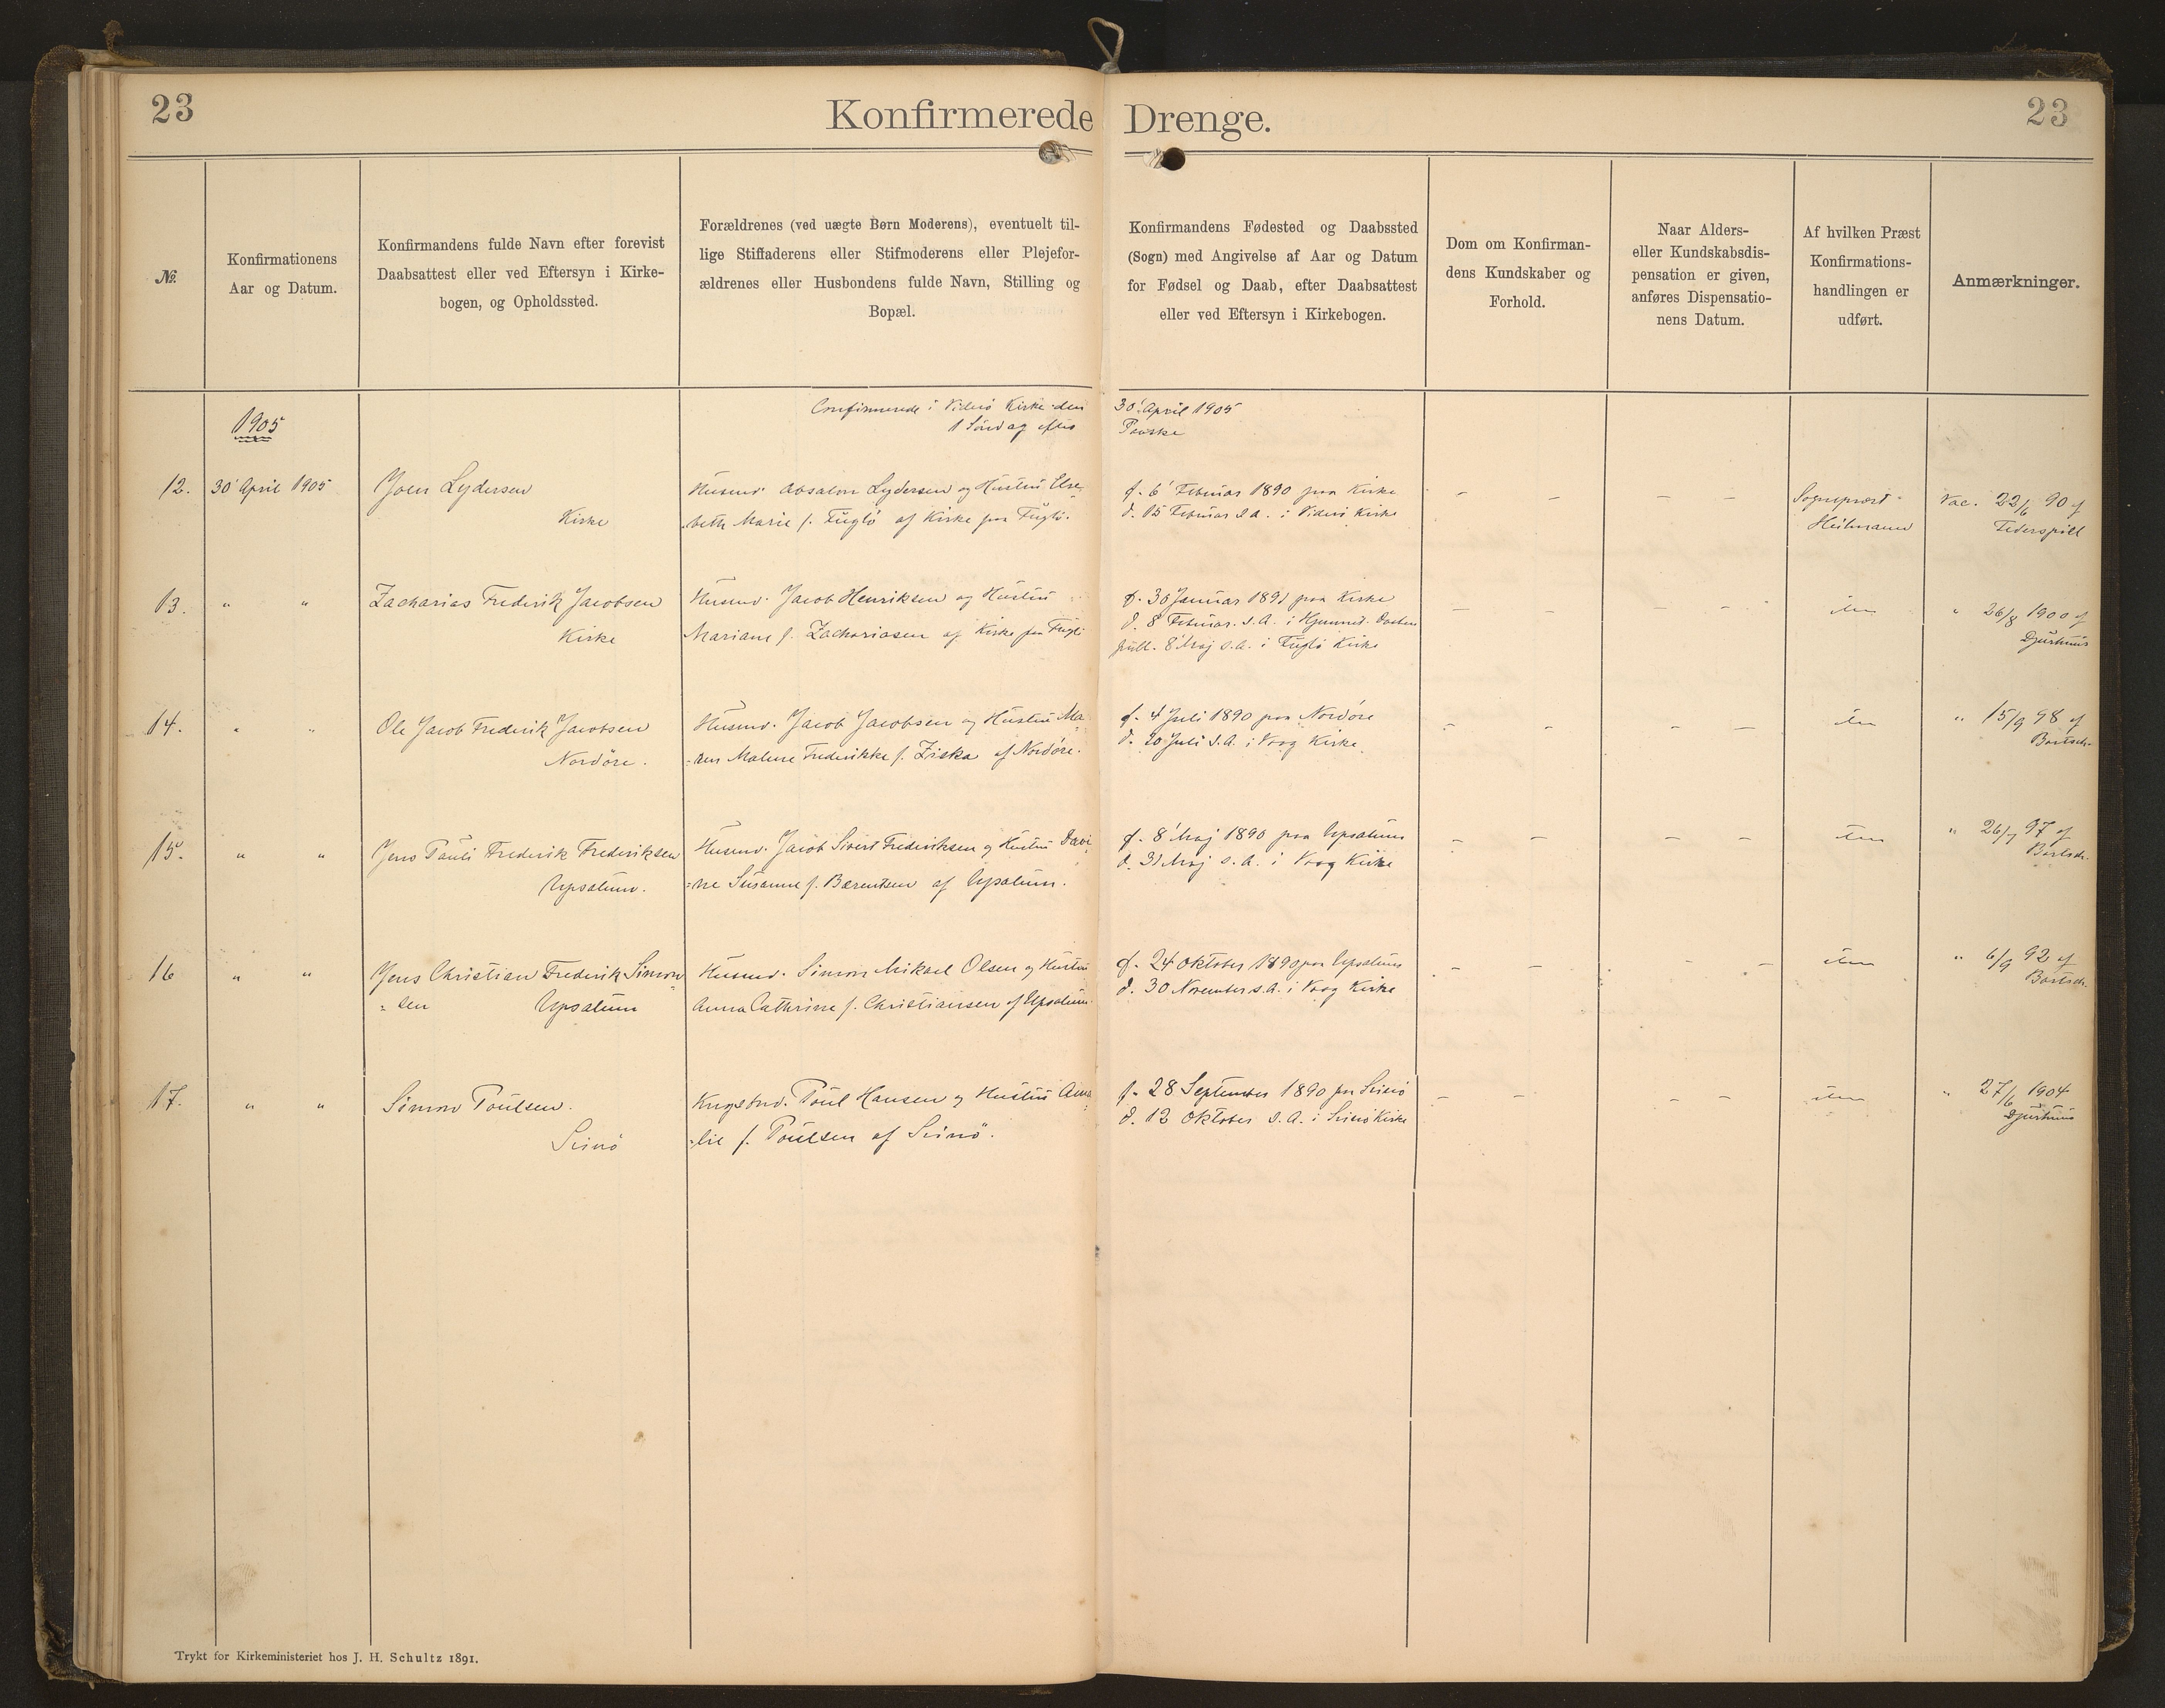 23
Konfirmerede Drenge.
23
№
Konfirmationens
Aar og Datum.
Konfirmandens fulde Navn efter forevist
Daabsattest eller ved Eftersyn i Kirke-
bogen, og Opholdssted.
Forældrenes (ved uægte Børn Moderens), eventuelt til-
lige Stiffaderens eller Stifmoderens eller Plejefor-
ældrenes eller Husbondens fulde Navn, Stilling og
Bopæl.
Konfirmandens Fødested og Daabssted
(Sogn) med Angivelse af Aar og Datum
for Fødsel og Daab, efter Daabsattest
eller ved Eftersyn i Kirkebogen.
Dom om Konfirman-
dens Kundskaber og
Forhold.
Naar Alders-
eller Kundskabsdis-
pensation er given,
anføres Dispensatio-
nens Datum.
Af hvilken Præst
Konfirmations-
handlingen er
udført.
Anmærkninger.
1905
Confirmerede i Viderö Kirke den 30' April 1905
1 Söndag efter Paaske
12.
30' April 1905
Joen Lydersen
Kirke
Husmd. Absalon Lydersen og Hustru Else-
beth Marie f. Fuglö af Kirke paa Fuglö.
f. 6' Februar 1890 paa Kirke
d. 15 Februar s.A. i Viderö Kirke
– – – –
Sognepræst
Heilmann
Vac. 22/6 90 af
Federspiel
13.
" "
Zacharias Frederik Jacobsen
Kirke
Husmd. Jacob Henriksen og Hustru
Mariane f. Zachariasen af Kirke paa Fuglö
f. 30 Januar 1891 paa Kirke
d. 8' Februar s.A. i Hjemmet. Daaben
8' Maj s.A. i Fuglö Kirke
– – – –
item
" 26/8 1900 af
Djurhuus
14.
" "
Ole Jacob Frederik Jacobsen
Nordöre.
Husmd. Jacob Jacobsen og Hustru Ma-
=ren Malene Frederikke f. Ziska af Nordöre.
f. 4' Juli 1890 paa Nordöre
d. 20 Juli s.A. i Vaag Kirke.
– – – –
item
" 15/9 98 af
Bærtsch.
15.
" "
Jens Pauli Frederik Frederiksen
Upsalum.
Husmd. Jacob Sivert Frederiksen og Hustru Davi-
=ne Susanne f. Barentsen af Upsalum.
f. 8' Maj 1890 paa Upsalum
d. 31 Maj s.A. i Vaag Kirke
– – – –
item
" 26/7 97 af
16
" "
Jens Christian Frederik Simon
=sen Upsalum
Husmd. Simon Mikael Olsen og Hustru
Anna Cathrine f. Christiansen af Upsalum.
f. 24' Oktober 1890 paa Upsalum
d. 30 November s.A. i Vaag Kirke
– – – –
item
" 6/9 92 af
17.
" "
Simon Poulsen.
Svinö
Kngsbnd. Poul Hansen og Hustru Ama-
=lie f. Poulsen af Svinö.
f. 28 September 1890 paa Svinö
d. 12 Oktober s.A. i Svinö Kirke
– – – –
item
" 27/6 1904
Djurhuus
Trykt for Kirkeministeriet hos J. H. Schultz 1891.